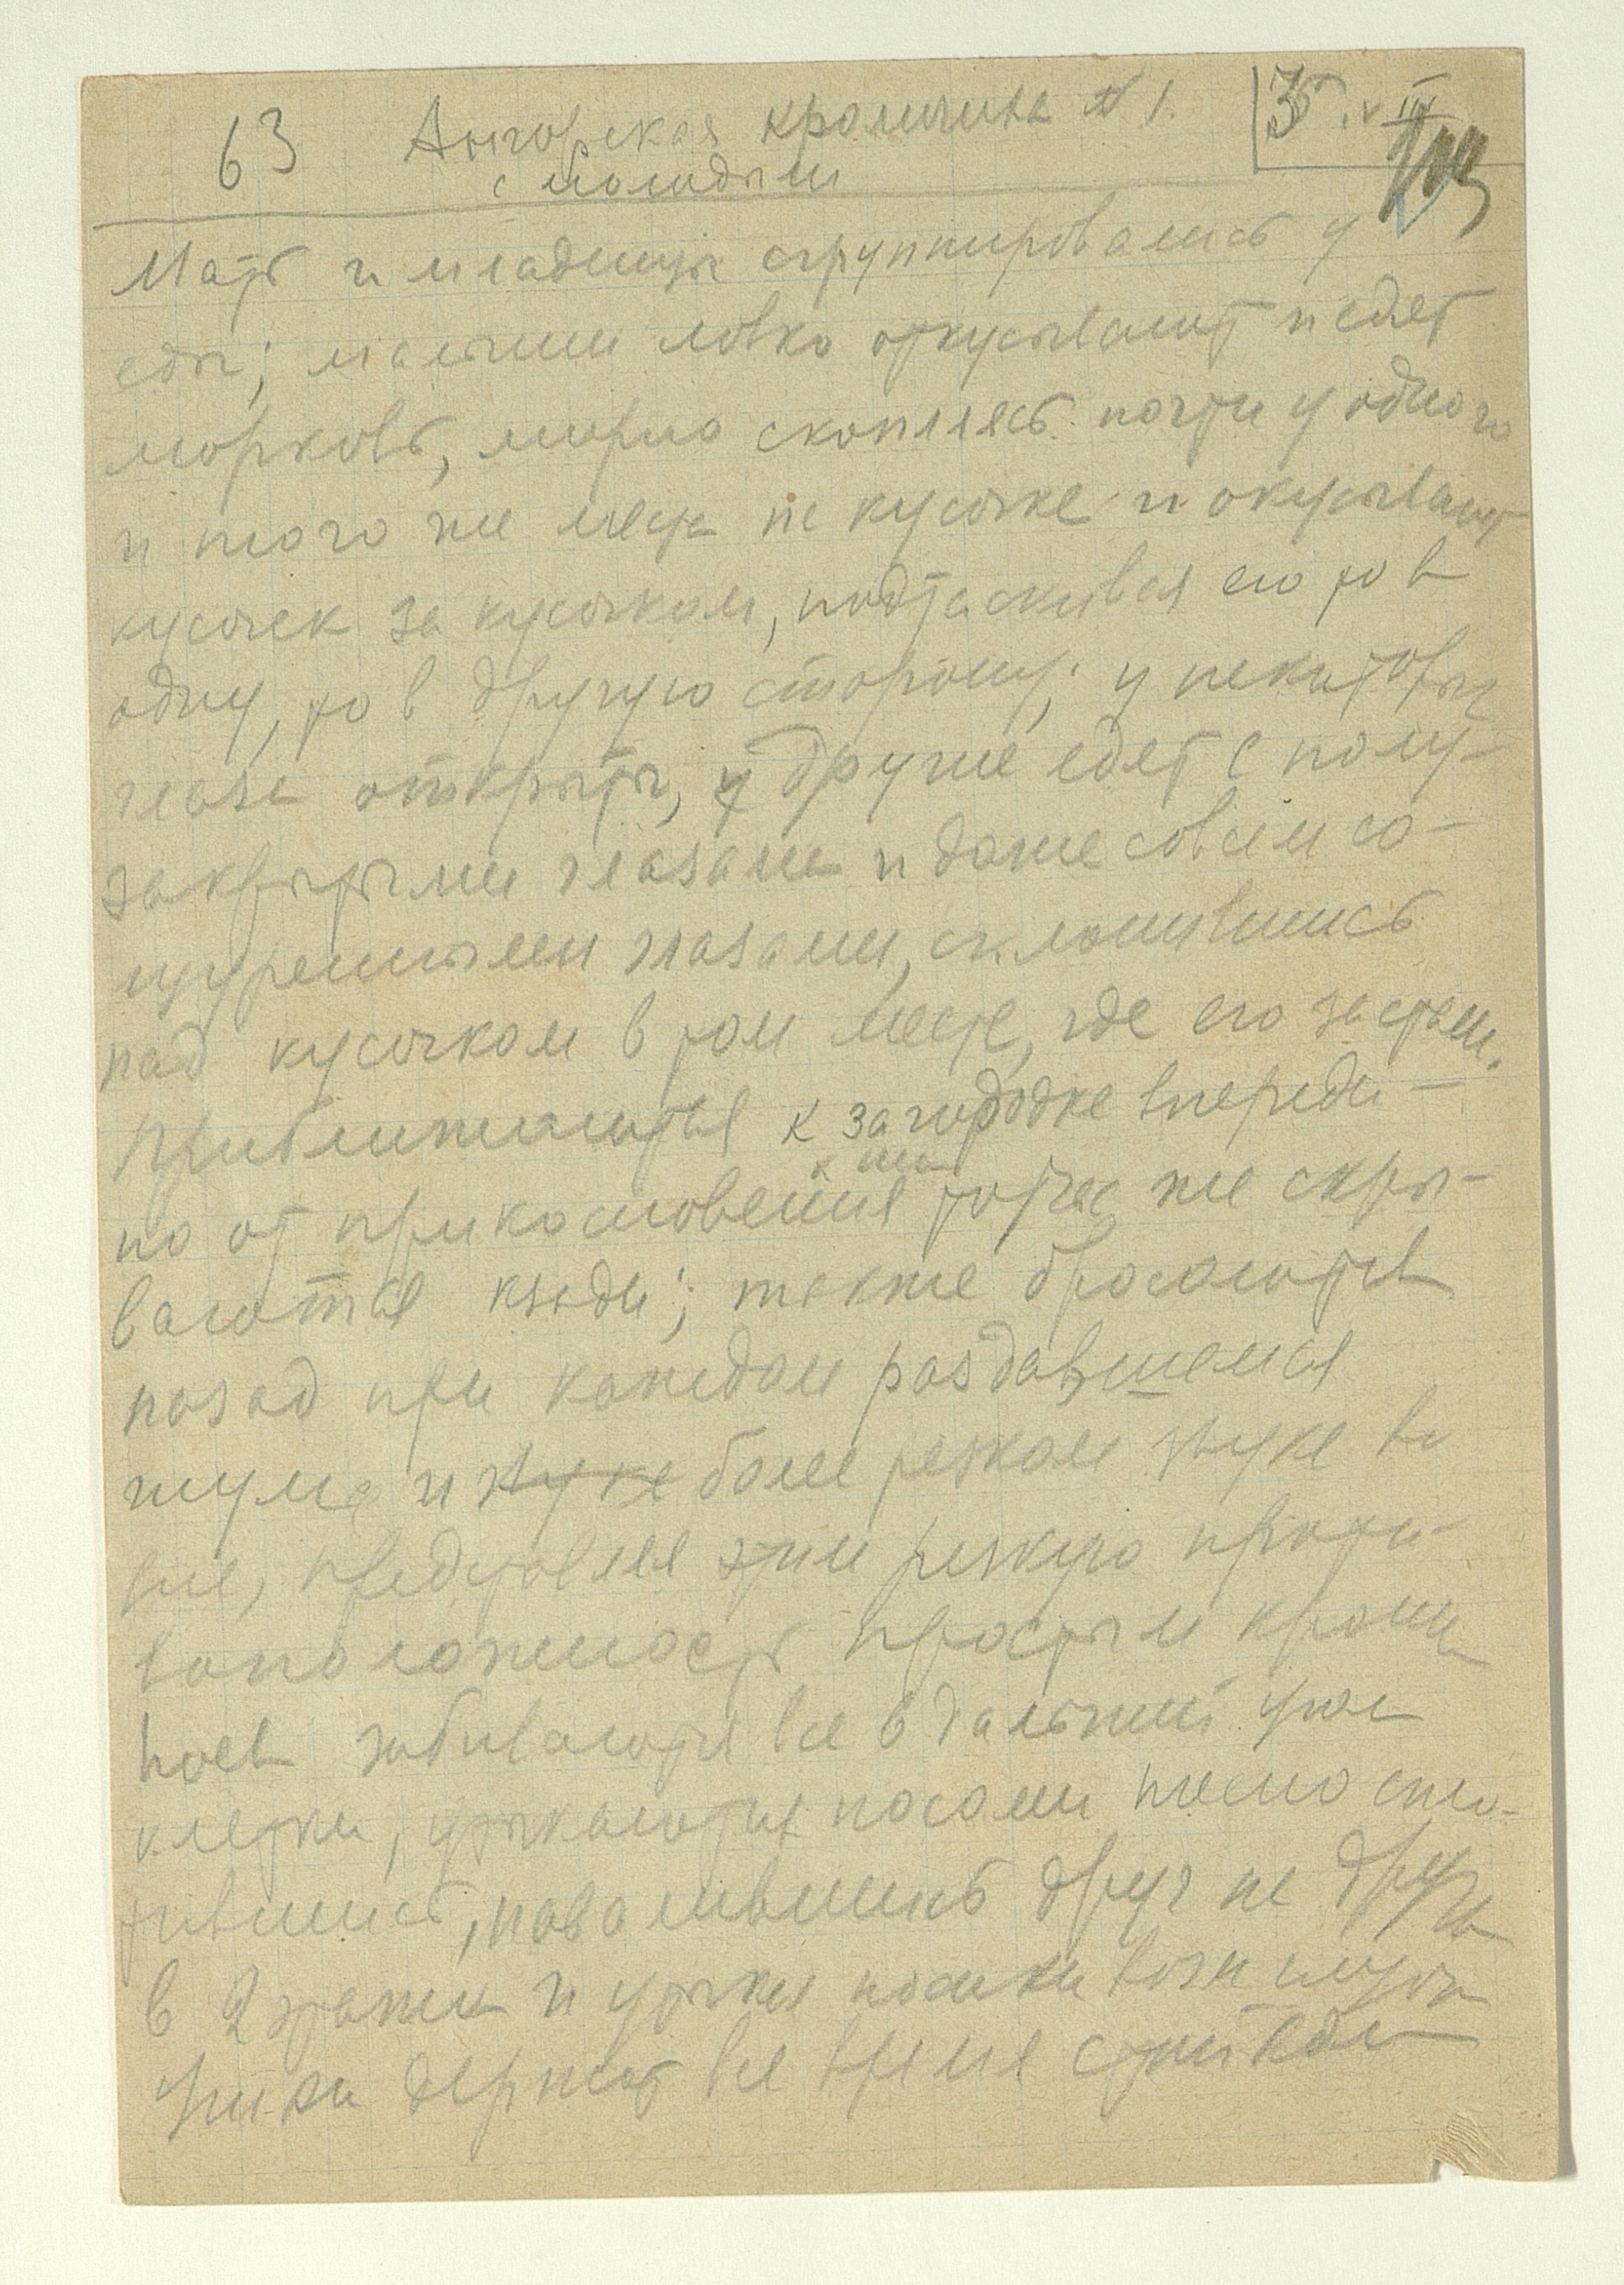 63 Ангорская крольчиха N 1.
с молодыми
Мать и младенцы сгруппировались у
еды; малыши ловко откусывают и едят
морковь, мирно скопляясь почти у одного
и того же места на кусочке и окусывают
кусочек за кусочком, подтаскивая его то в
одну, то в другую сторону; у некоторых
глаза открыты, другие едят с полу-
закрытыми глазами и даже совсем со-
щуренными глазами, склонившись
над кусочком в том месте, где его застали.
Приближаются к загородке впереди
к ним
но от прикосновения тотчас же скры-
ваются кзади; также бросаются
назад при каждом раздавшемся
шуме и звуке более резком звуке во
вне, представляя этим резкую проти-
воположность простым кроли
забиваются все в дальний угол
клетки, утыкаются носами тесно спло-
тившись, навалившись друг на друга
в 2 этажа и утыкая носики
Ушки держат все время